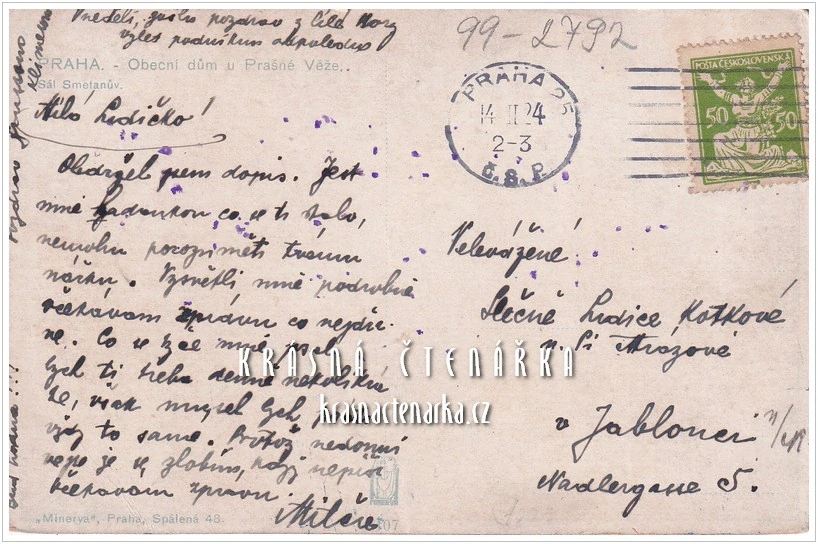 V neděli, zaslu pozdrav z Bílé Hory
výlet podniknu odpoledne
99-2792
PRAHA. - Obecní dům u Prašné Věže.
Sál Smetanův.
PRAHA 25
14 II 24
2-3
Č.S.P.
POŠTA ČESKOSLOVENSKÁ
50 50
Milá Lidičko!
Obdržel jsem dopis. Jest
mně hádankou co se ti stalo,
nemohu porozuměti tvému
nářku. Vysvětli mně podrobně
očekávám zprávu co nejdří-
ve. Co se týče mně, psal
bych ti třeba denně několikrá
te, však musel bych psáti
vždy to samé. Protož nedomní
vej se, že se zlobím, když nepíši
očekávám zprávu.
Velevážené
Slečně Lidice Kotkové
u. Pí Mrázové
v Jablonci n/N
Nadlergasse 5.
Pozdrav
KRÁSNÁ ČTENÁŘKA
krasnactenarka.cz
„Minerva“, Praha, Spálená 48.
07